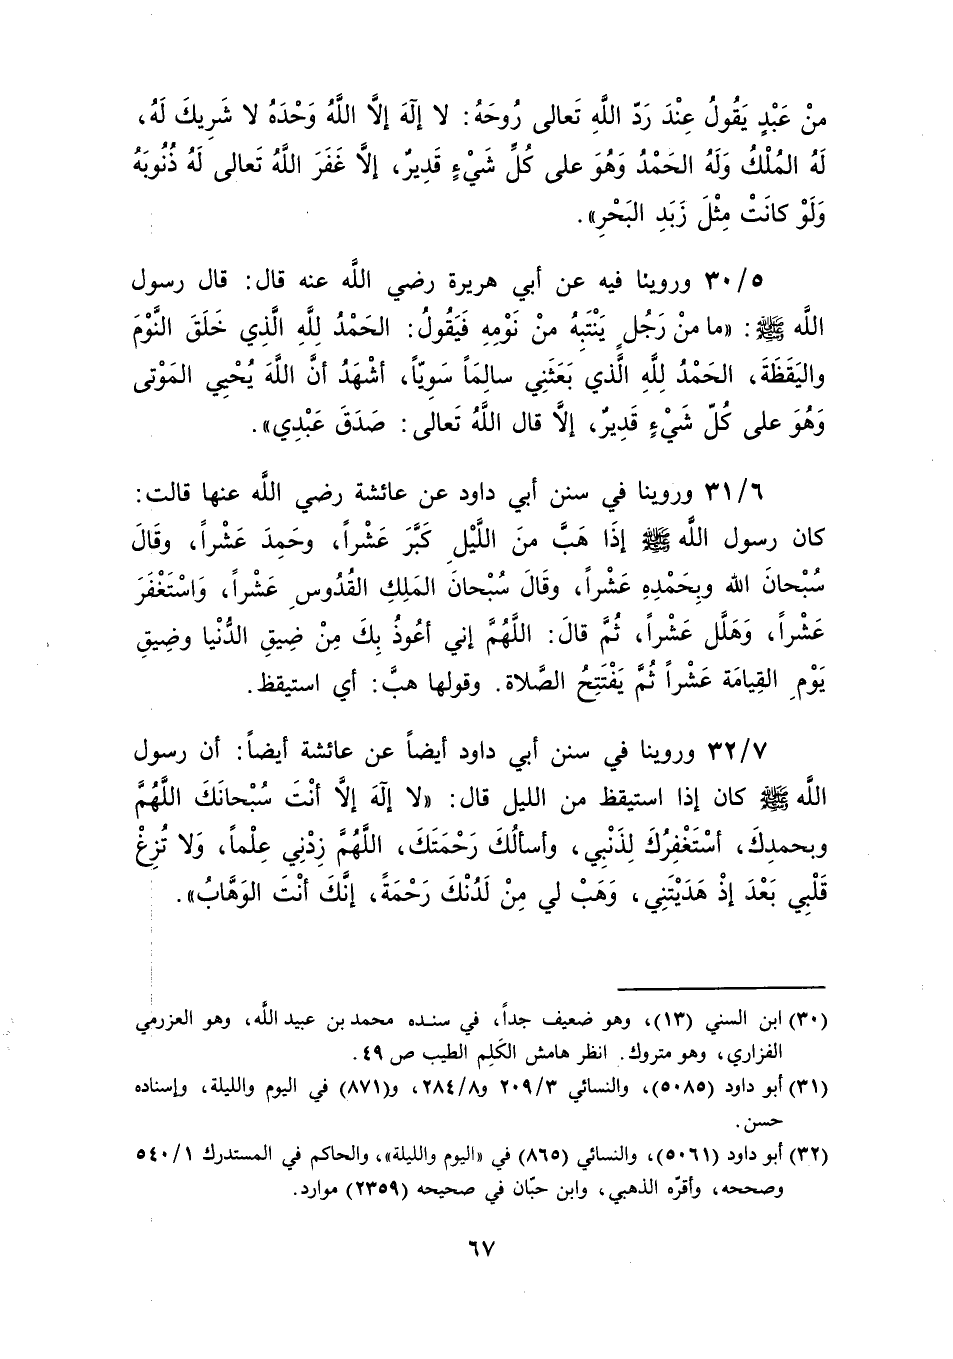 منْ عَبْدٍ يَقُولُ عِنْدَ رَدّ اللَّهِ تَعالى رُوحَهُ: لا إلَهَ إلاَّ اللَّهُ وَحْدَهُ لا شَرِيكَ لَهُ،
لَهُ المُلْكُ وَلَهُ الحَمْدُ وَهُوَ على كُلِّ شَيْءٍ قَدِيرٌ، إلاَّ غَفَرَ اللَّهُ تَعالى لَهُ ذُنُوبَهُ
وَلَوْ كانَتْ مِثْلَ زَبَدِ البَحْرِ».
٣٠/٥ وروينا فيه عن أبي هريرة رضي اللَّه عنه قال: قال رسول
اللَّه ﷺ: «ما منْ رَجُلٍ يَنْتَبِهُ منْ نَوْمِهِ فَيَقُولُ: الحَمْدُ لِلَّهِ الَّذِي خَلَقَ النَّوْمَ
واليَقَظَةَ، الحَمْدُ لِلَّهِ الَّذي بَعَثَنِي سالِمَاً سَوِيّاً، أشْهَدُ أنَّ اللَّهَ يُحْيِي المَوْتى
وَهُوَ على كُلّ شَيْءٍ قَدِيرٌ، إلاَّ قال اللَّهُ تَعالى: صَدَقَ عَبْدِي».
٣١/٦ وروينا في سنن أبي داود عن عائشة رضي اللَّه عنها قالت:
كان رسول اللَّه ﷺ إذَا هَبَّ منَ اللَّيْلِ كَبَّرَ عَشْراً، وحَمِدَ عَشْراً، وقَالَ
سُبْحانَ الله وبِحَمْدِهِ عَشْراً، وقَالَ سُبْحانَ المَلِكِ القُدُوسِ عَشْراً، وَاسْتَغْفَرَ
عَشْراً، وَهَلَّل عَشْراً، ثُمَّ قالَ: اللَّهُمَّ إني أعُوذُ بِكَ مِنْ ضِيقِ الدُّنْيا وضِيقِ
يَوْمِ القِيامَة عَشْراً ثُمَّ يَفْتَتِحُ الصَّلاة. وقولها هبَّ: أي استيقظ.
٣٢/٧ وروينا في سنن أبي داود أيضاً عن عائشة أيضاً: أن رسول
اللَّه ﷺ كان إذا استيقظ من الليل قال: «لا إلَهَ إلاَّ أنْتَ سُبْحانَكَ اللَّهُمَّ
وبحمدِكَ، أسْتَغْفِرُكَ لِذَنْبِي، وأسألُكَ رَحْمَتَكَ، اللَّهُمَّ زِدْنِي عِلْماً، وَلا تُزِغْ
قَلْبِي بَعْدَ إذْ هَدَيْتَنِي، وَهَبْ لي مِنْ لَدُنْكَ رَحْمَةً، إنَّكَ أنْتَ الوَهَّابُ».
(٣٠) ابن السني (١٣)، وهو ضعيف جداً، في سنده محمد بن عبيد اللَّه، وهو العزرمي
الفزاري، وهو متروك. انظر هامش الكَلِم الطيب ص ٤٩.
(٣١) أبو داود (٥٠٨٥)، والنسائي ٢٠٩/٣ و٢٨٤/٨، و(٨٧١) في اليوم والليلة، وإسناده
حسن.
(٣٢) أبو داود (٥٠٦١)، والنسائي (٨٦٥) في «اليوم والليلة»، والحاكم في المستدرك ٥٤٠/١
وصححه، وأقرّه الذهبي، وابن حبّان في صحيحه (٢٣٥٩) موارد.
٦٧